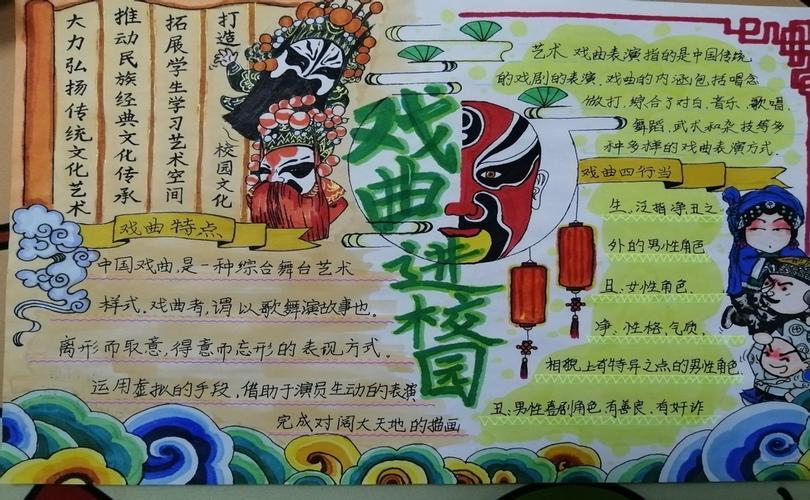 打造~校园文化
拓展学生学习艺术空间
推动民族经典文化传承
大力弘扬传统文化艺术
戏曲进校园
戏曲特点
中国戏曲,是一种综台舞台艺术
样式.戏曲者,谓以歌舞演故事也.
离形而取意,得意而忘形的表现方式.
运用虚拟的手段,借助于演员生动的表演
完成对阔大天地的描画
艺术 戏曲表演指的是中国传统
的戏剧的表演.戏曲的内涵包括唱念
做打,综合了对白、音乐、歌唱、
舞蹈,武术和杂技等多
种多样的戏曲表演方式.
戏曲四行当
生、泛指净丑之
外的男性角色
旦、女性角色.
净、性格,气质.
相貌上有特异之点的男性角色.
丑、男性喜剧角色.有善良,有奸诈